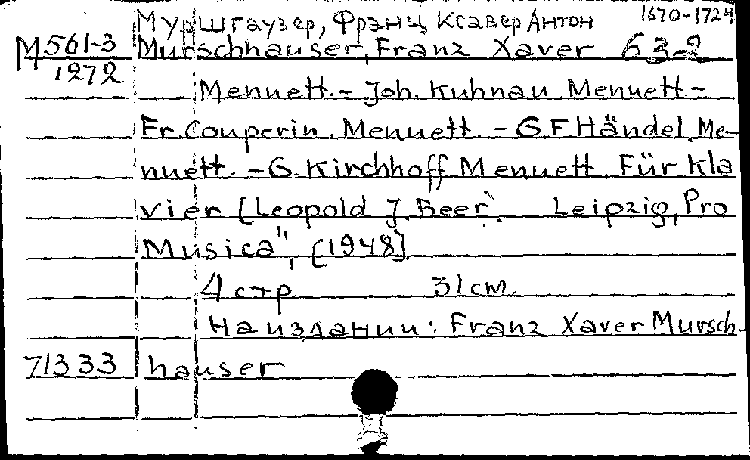 Муршгаузер, Франц Ксавер Антон 1670-1724
М 561-3 Murschhauser, Franz Xaver 63-2
1272
Menuett.- Joh. Kuhnau Menuett-
Fr. Couperin. Menuett. - G.F. Händel Me-
nuett. - G. Kirchhoff Menuett Für Kla
vier [Leopold J. Beer]. Leipzig, Pro
Musica", [1948]
4 стр 31 см.
На издании: Franz Xaver Mursch-
71333 hauser